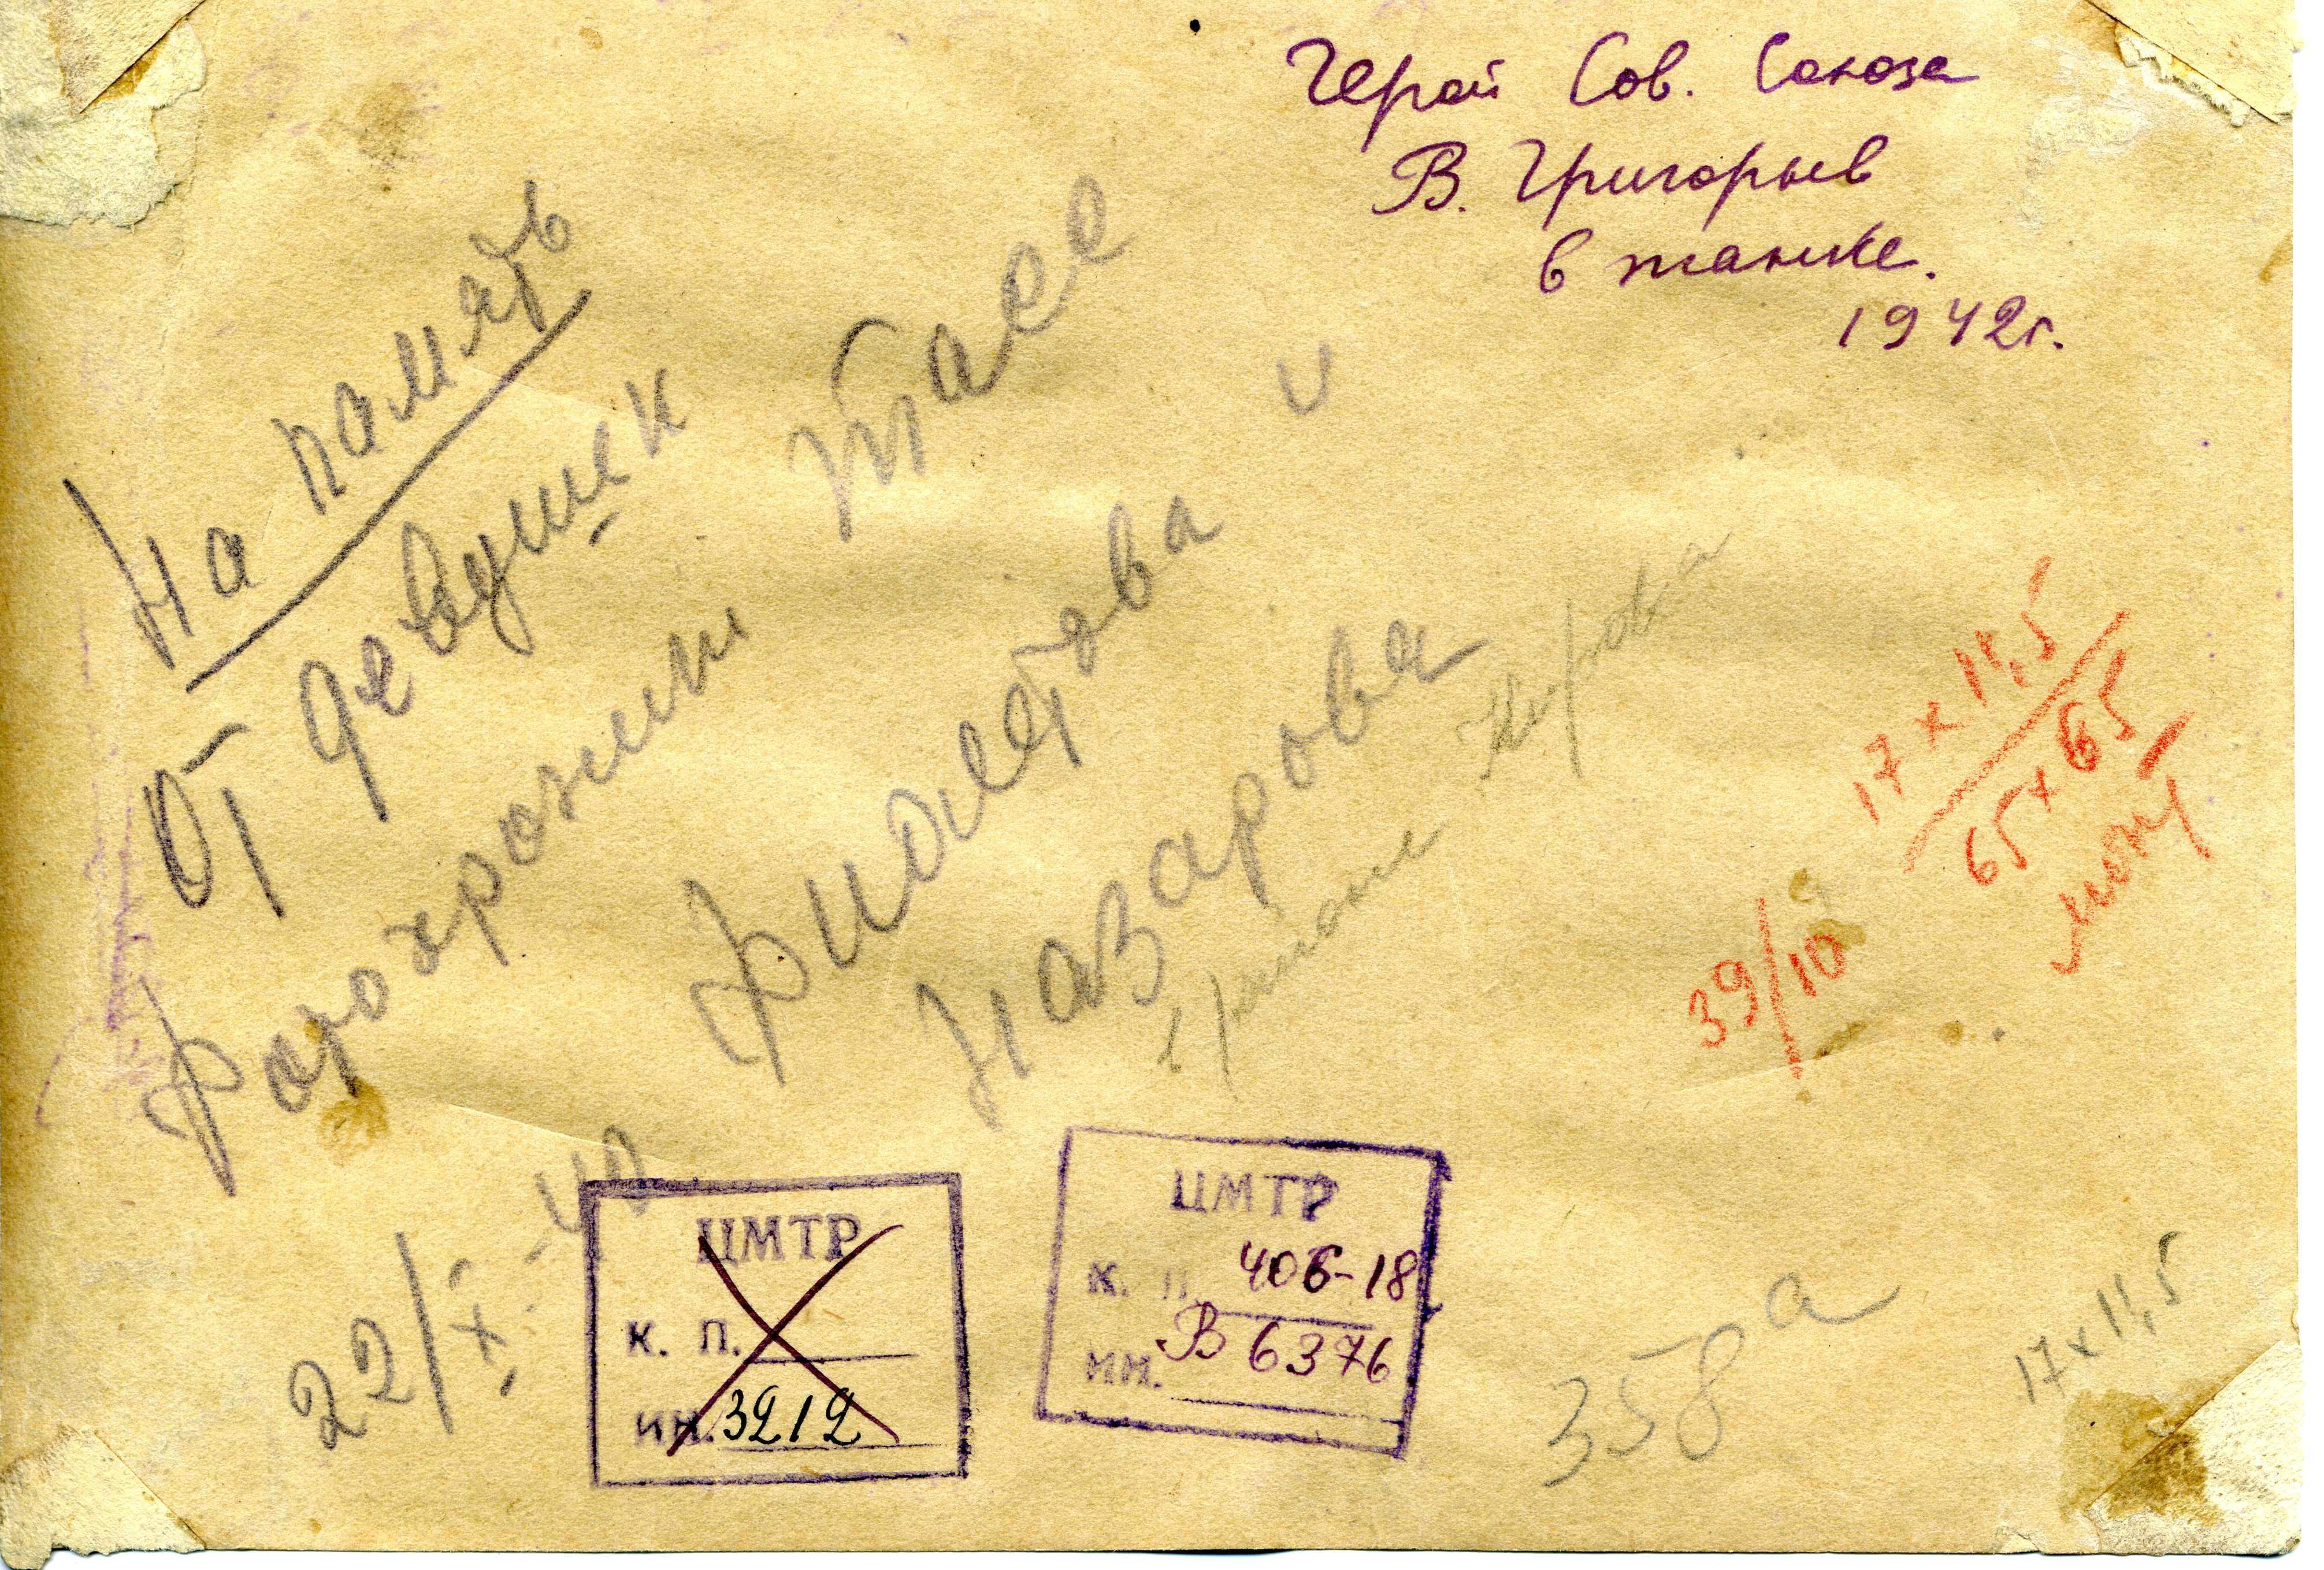 Герой Сов. Союза
В. Григорьев
в танке.
1942г.
На память
От девушек
Фотохроники ТАСС
Фиолетова и
Назарова
22/X-40
17 x 11,5
65 x 65
39/10
ЦМТР
К. П.
ИН. 3212
ЦМТР
К. П. 406-18
ИН. В 6376
358 а
17 x 11,5